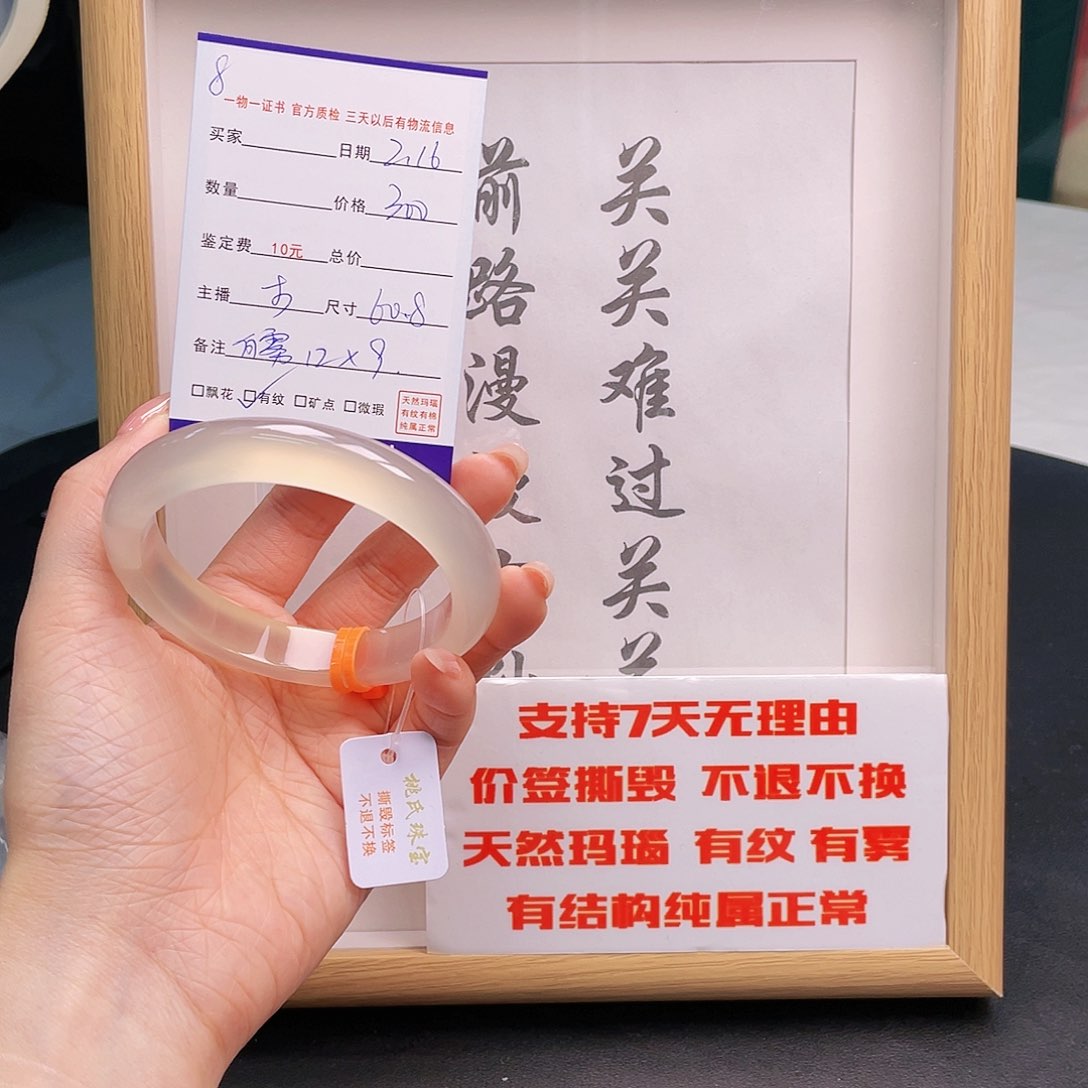 8
一物一证书 官方质检 三天以后有物流信息
买家 日期 2.16
数量 价格 300
鉴定费 10元 总价
主播 尺寸 60.8
备注 有雾 12×9.
□飘花 □有纹 □矿点 □微瑕
天然玛瑙
有纹有棉
纯属正常
关关难过关关
前路漫
姚氏珠宝
撕毁标签
不退不换
支持7天无理由
价签撕毁 不退不换
天然玛瑙 有纹 有雾
有结构纯属正常